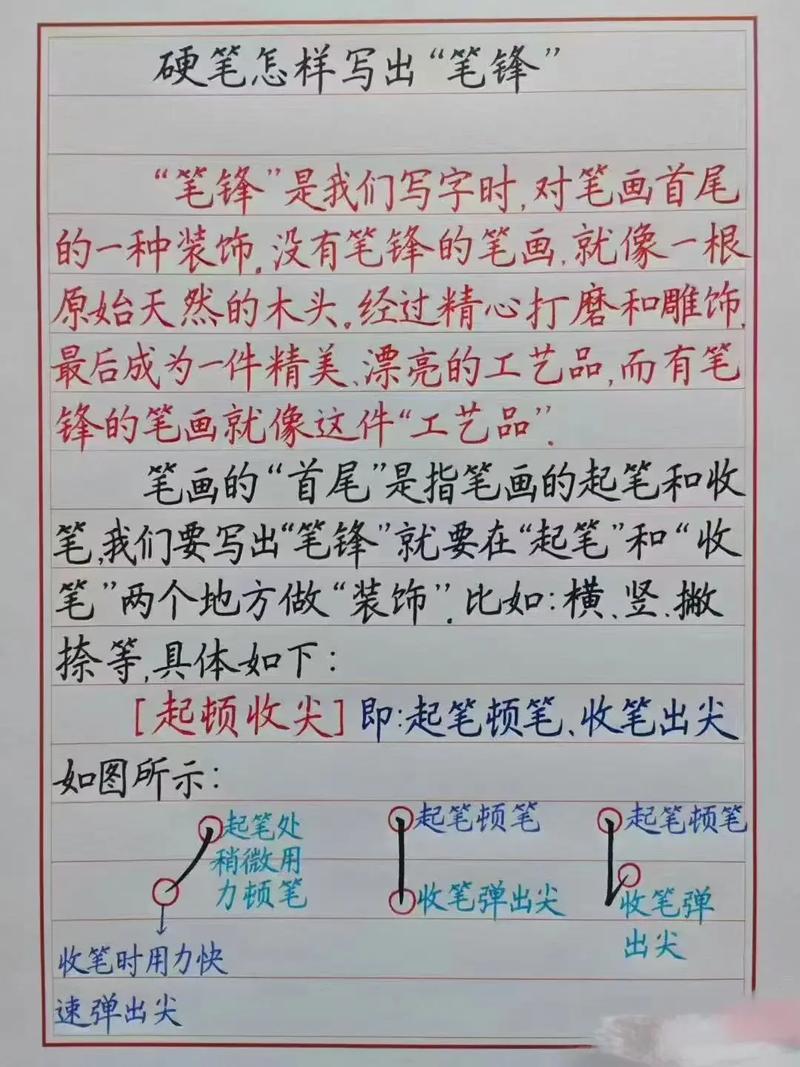 硬笔怎样写出“笔锋”
“笔锋”是我们写字时,对笔画首尾
的一种装饰。没有笔锋的笔画,就像一根
原始天然的木头。经过精心打磨和雕饰,
最后成为一件精美、漂亮的工艺品,而有笔
锋的笔画就像这件“工艺品”.
笔画的“首尾”是指笔画的起笔和收
笔,我们要写出“笔锋”就要在“起笔”和“收
笔”两个地方做“装饰”.比如:横、竖、撇
捺等,具体如下:
[起顿收尖]即:起笔顿笔、收笔出尖
如图所示:
起笔处
稍微用
力顿笔
收笔时用力快
速弹出尖
起笔顿笔
收笔弹出尖
起笔顿笔
收笔弹
出尖